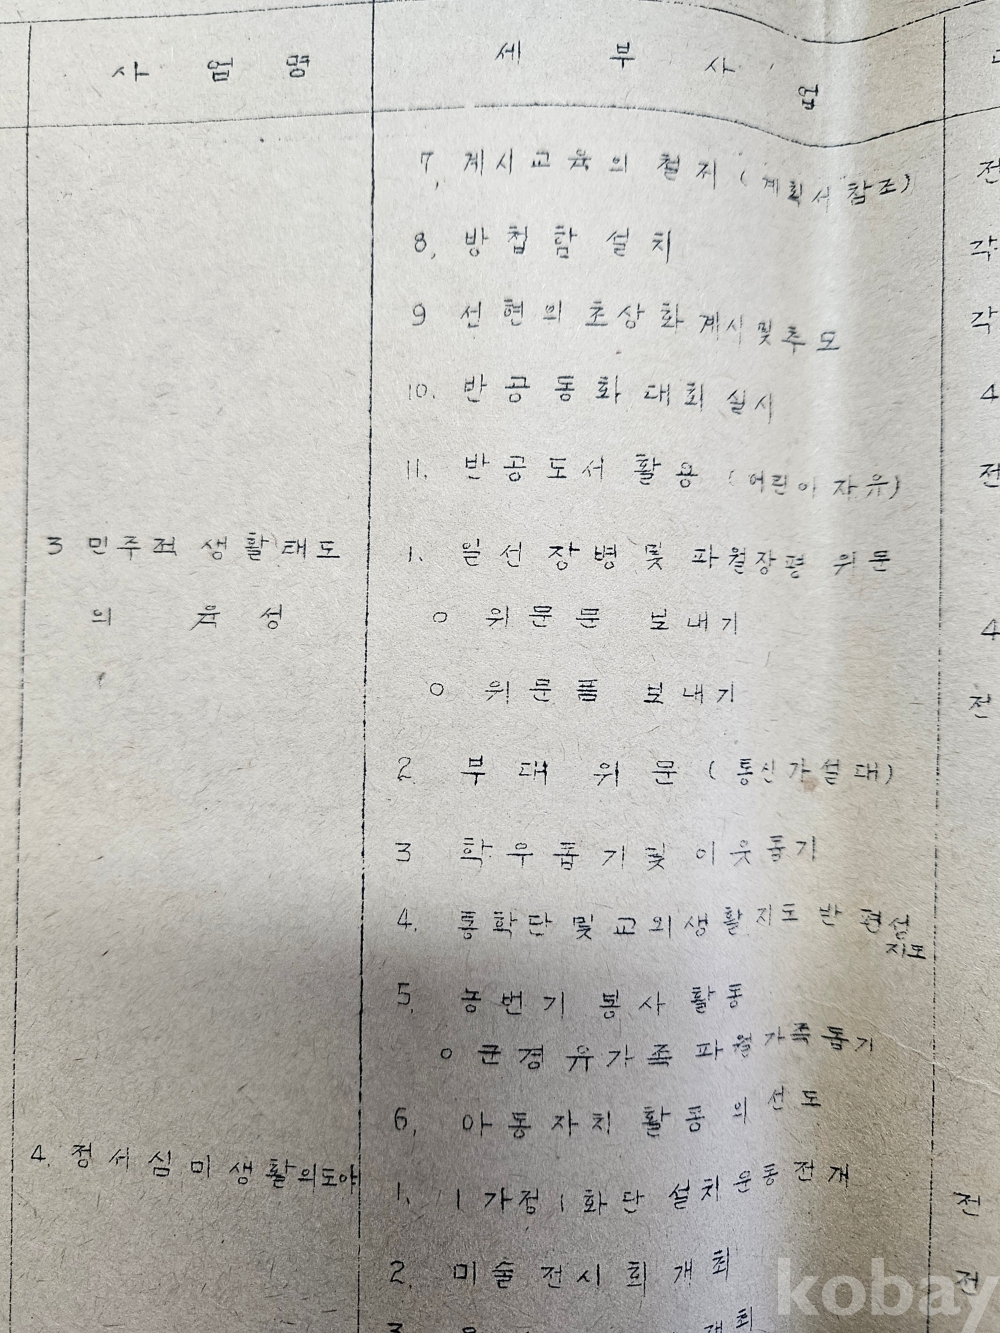 사 업 명 세 부 사 업
7, 계시교육의 철저 (계획서 참조) 전
8, 방첩함 설치 각
9 선현의 초상화 계시 및 추모 각
10. 반공 동화 대회 실시 4
11. 반공도서 활용 (어린이 자유) 전
3 민주적 생활태도 1. 일선 장병 및 파월장병 위문
의 육성 ○ 위문문 보내기 4
○ 위문품 보내기 전
2 부대 위문 (통신가설대)
3 학우돕기 및 이웃돕기
4. 통학단 및 교외생활지도반 편성
지도
5. 농번기 봉사 활동
○ 군경유가족 파월가족 돕기
6, 아동자치 활동의 선도
4. 정서심미생활의도야 1. 1가정1화단 설치운동 전개 전
2. 미술전시회 개최 전
3. 개최
kobay